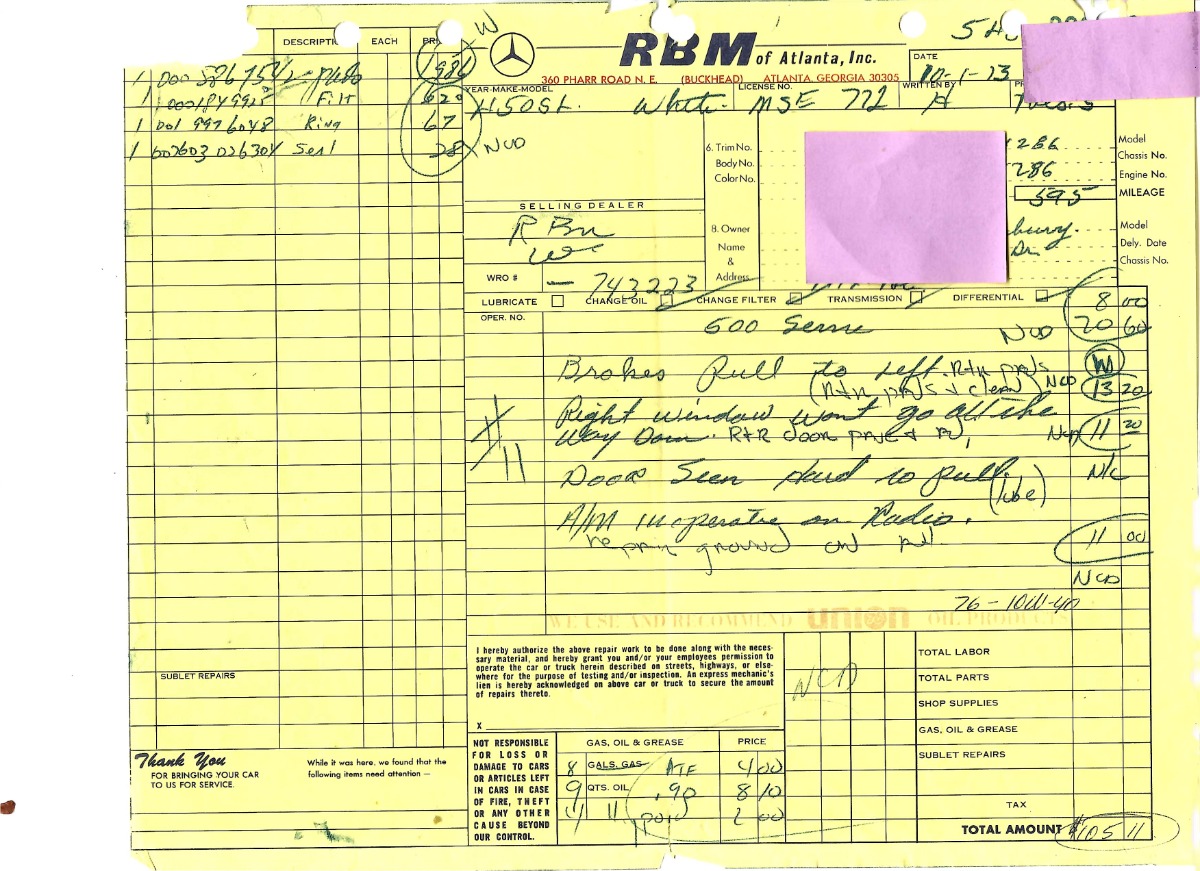 DESCRIPTI EACH PRI
1 000 586 7542
1 0001849925 Filt 620
1 001 997 6048 Ring 67
1 007603 026304 Seal 28 NCD
1986 W
RBM of Atlanta, Inc.
360 PHARR ROAD N. E. (BUCKHEAD) ATLANTA, GEORGIA 30305
DATE 10-1-73
YEAR-MAKE-MODEL LICENSE NO. WRITTEN BY
450SL White MSE 772
6. Trim No.
Body No.
Color No.
Model
Chassis No. 286
Engine No. 286
MILEAGE 595
SELLING DEALER
8. Owner
Name
&
Address
Model
Dely. Date
Chassis No.
bury.
Dr.
WRO # 743223
LUBRICATE CHANGE OIL CHANGE FILTER TRANSMISSION DIFFERENTIAL 8 00
OPER. NO.
500 NCD 20 60
Brakes Pull to Left. W
NCD 13 20
# 11
Right window wont go all the
Way Down. R+R door NCD 11 20
Door Hard to pull. (lube) N/C
inoperative on Radio.
repair ground on 11 00
NCD
76-10W-40
WE USE AND RECOMMEND union OIL PRODUCTS
I hereby authorize the above repair work to be done along with the neces-
sary material, and hereby grant you and/or your employees permission to
operate the car or truck herein described on streets, highways, or else-
where for the purpose of testing and/or inspection. An express mechanic's
lien is hereby acknowledged on above car or truck to secure the amount
of repairs thereto.
X
NCD
TOTAL LABOR
TOTAL PARTS
SHOP SUPPLIES
GAS, OIL & GREASE
SUBLET REPAIRS
TAX
TOTAL AMOUNT $105 11
SUBLET REPAIRS
Thank You
FOR BRINGING YOUR CAR
TO US FOR SERVICE.
While it was here, we found that the
following items need attention —
NOT RESPONSIBLE
FOR LOSS OR
DAMAGE TO CARS
OR ARTICLES LEFT
IN CARS IN CASE
OF FIRE, THEFT
OR ANY OTHER
CAUSE BEYOND
OUR CONTROL.
GAS, OIL & GREASE PRICE
8 GALS. GAS ATF 4 00
9 QTS. OIL .90 8 10
2 00